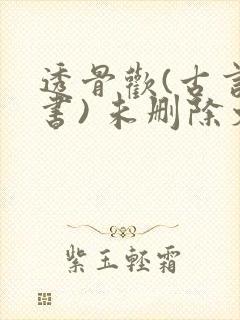 透骨歡(古言
書)未删除
紫玉輕霜